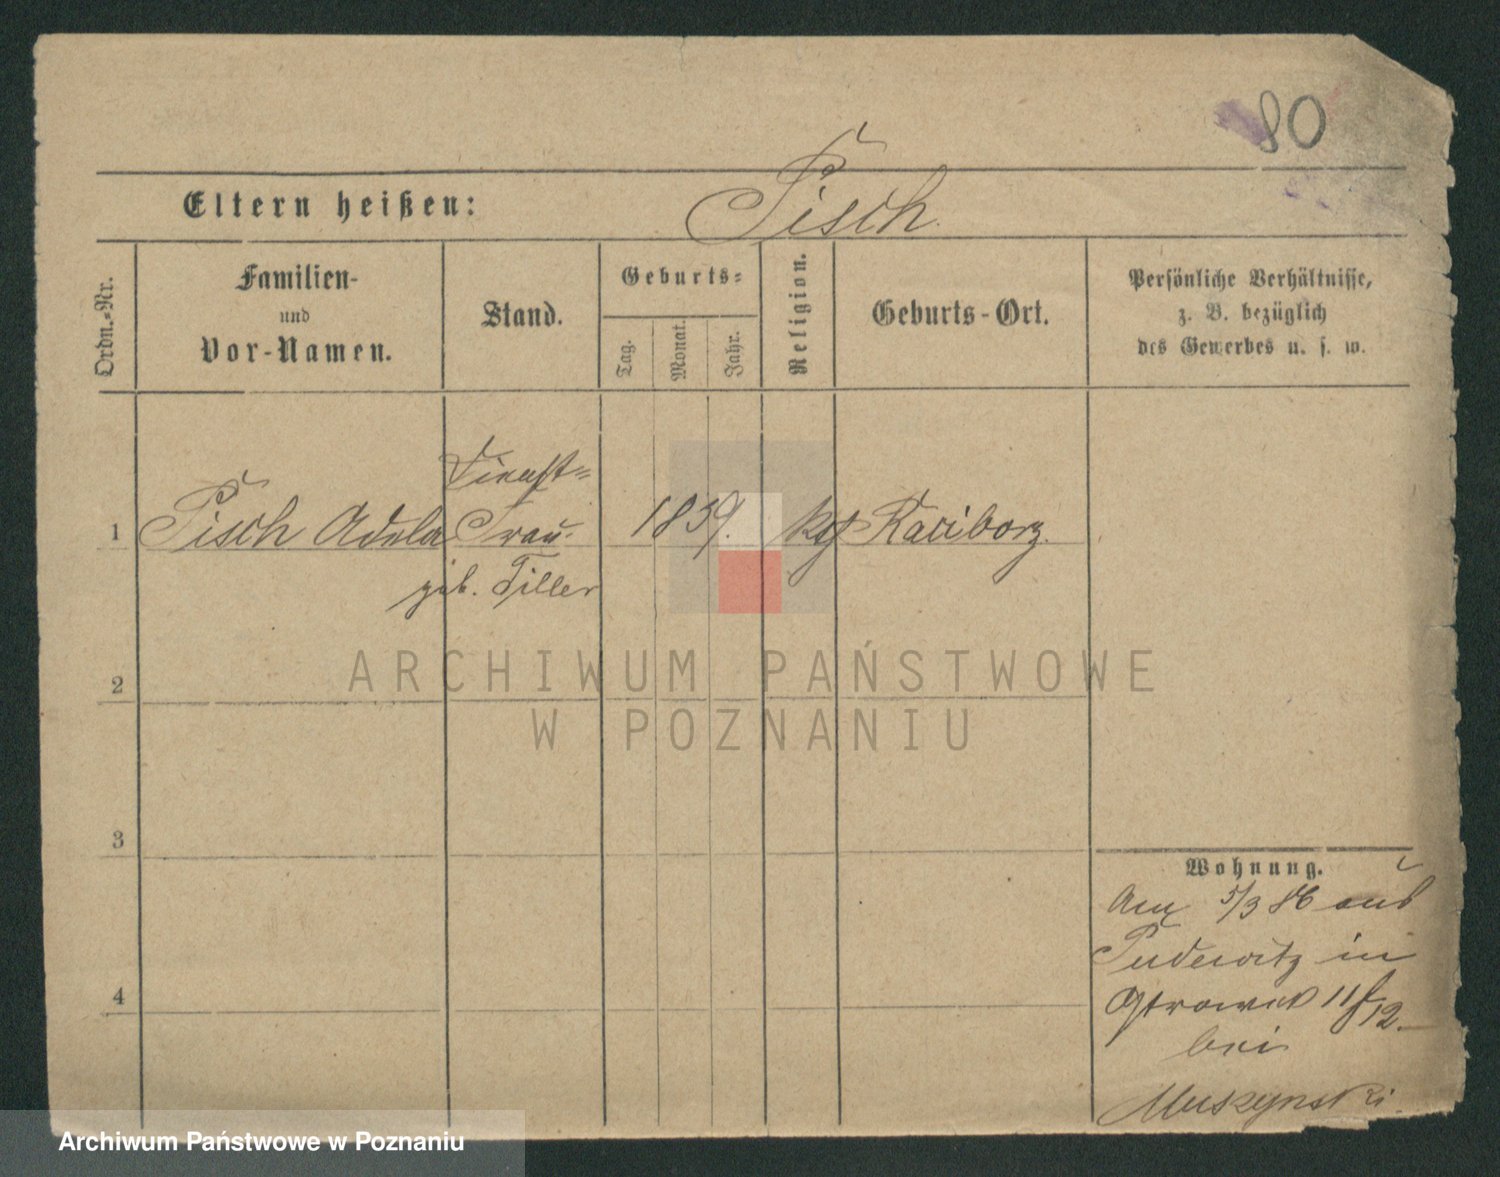 80
Eltern heißen: Tisch
Ordn.-Nr.
Familien-
und
Vor-Namen.
Stand.
Geburts-
Tag.
Monat.
Jahr.
Religion.
Geburts-Ort.
Persönliche Verhältnisse,
z. B. bezüglich
des Gewerbes u. s. w.
Dienst-
1 Tisch Adela Frau 1839. ktḥ Raciborz.
geb. Tiller
2
3
4
Wohnung.
Am 5/3 86 aus
Pudewitz in
Ostrowek 11/12.
bei
Muszynski.
ARCHIWUM PAŃSTWOWE
W POZNANIU
Archiwum Państwowe w Poznaniu